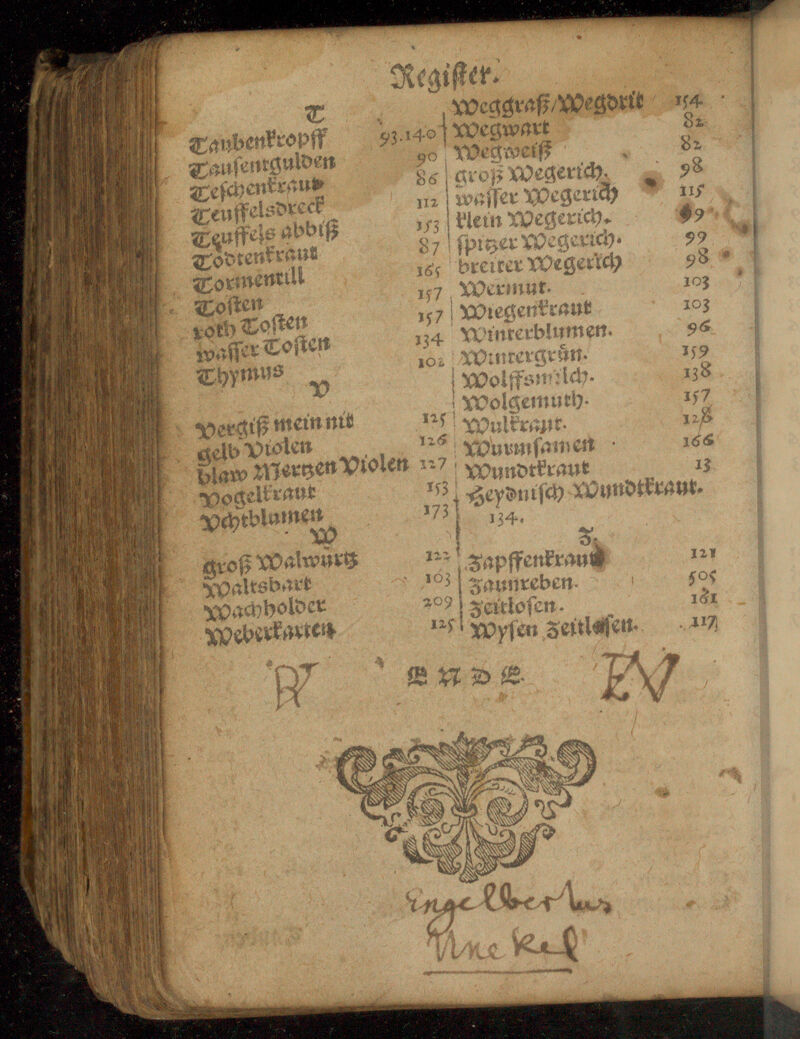 Regiſter.
T
Taubenkropff 93.140
Tauſentgulden 90
Teſchenkraut 86
Teuffelsdreck 112
Teuffels abbiß 153
Todtenkraut 87
Tormentill 165
Toſten 157
roth Toſten 157
waſſer Toſten 134
Thymus 102
V
Vergiß mein nit 125
gelb Violen 126
blaw Mertzen Violen 127
Vogelkraut 153
Vchtblumen 173
W
groß Walwurtz 122
Waltsbart 103
Wachholder 209
Weberkarten 125
Weggraß/Wegdrit 154
Wegwart 82
Wegweiß 82
groß Wegerich. 98
waſſer Wegerich 115
klein Wegerich.
ſpitzer Wegerich. 99
breiter Wegerich 98
Wermut. 103
Wiegenkraut 103
Winterblumen. 96
Wintergrün. 159
Wolffsmilch. 138
Wolgemuth. 157
Wulkraut. 128
Wurmſamen 166
Wundtkraut 13
Heydniſch Wundtkraut.
134.
Z.
Zapffenkraut 121
Zaunreben. 505
Zeitloſen. 181
Wyſen Zeitloſen. 117
ENDE.
Engelbertus
Unckel